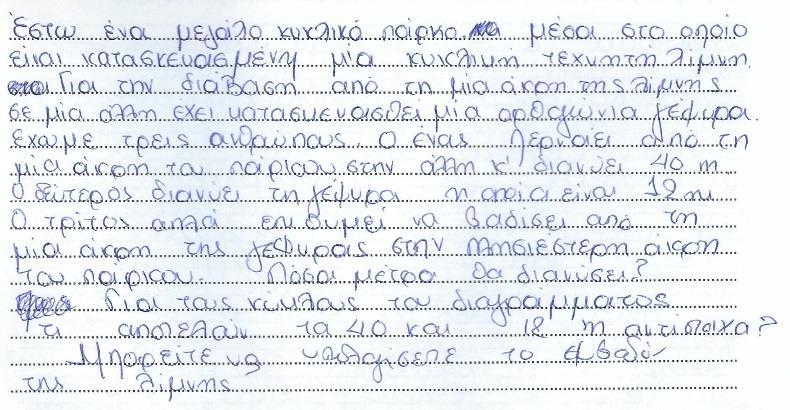 Έστω ένα μεγάλο κυκλικό πάρκο μέσα στο οποίο
είναι κατασκευασμένη μία κυκλική τεχνητή λίμνη
Για την διάβαση από τη μία άκρη της λίμνης
σε μία άλλη έχει κατασκευασθεί μία ορθογώνια γέφυρα.
Έχωμε τρεις ανθρώπους. Ο ένας περνάει από τη
μία άκρη του πάρκου στην άλλη κ' διανύει 40 m
Ο δεύτερος διανύει τη γέφυρα η οποία είναι 12 m
Ο τρίτος απλά επιθυμεί να βαδίσει από τη
μία άκρη της γέφυρας στην πλησιέστερη άκρη
του πάρκου. Πόσα μέτρα θα διανύσει?
Για τους κύκλους του διαγράμματος
τι αποτελούν τα 40 και 12 m αντίστοιχα?
Μπορείτε να υπολογίσετε το εμβαδό
της λίμνης